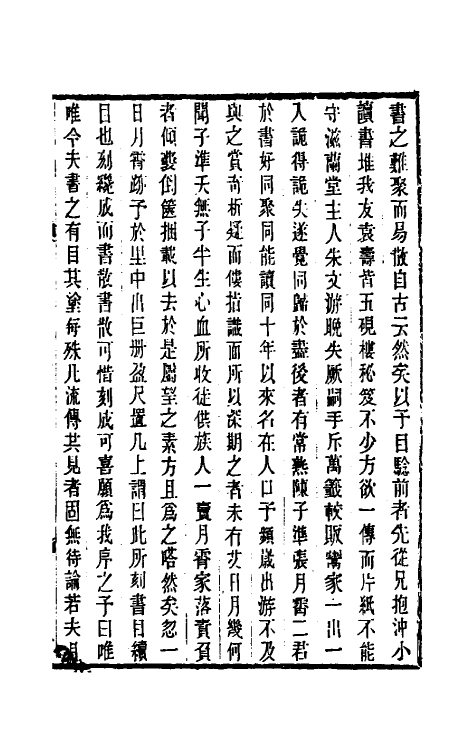 書之難聚而易散自古云然矣以予目驗前者先從兄抱沖小
讀書堆我友袁壽皆五硯樓秘笈不少方欲一傳而片紙不能
守滋蘭堂主人朱文游晚失厥嗣手斥萬籤較販鬻家一出一
入詭得詭失遂覺同歸於盡後者有常熟陳子準張月霄二君
於書好同聚同能讀同十年以來名在人口予頻歲出游不及
與之賞奇析疑而僂指識面所以深期之者未有艾日月幾何
聞子準夭無子半生心血所收徒供族人一賣月霄家落責負
者傾囊倒篋捆載以去於是屬望之素方且為之嗒然矣忽一
日月霄跡予於里中出巨冊盈尺置几上謂曰此所刻書目續
目也刻纔成而書散書散可惜刻成可喜願為我序之予曰唯
唯今夫書之有目其塗每殊凡流傳共見者固無待論若夫月